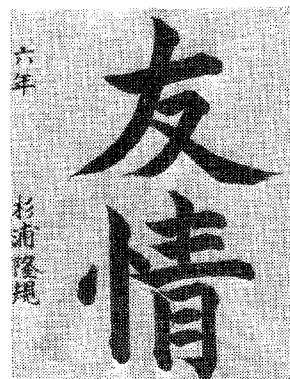 友情
六年 杉浦隆規